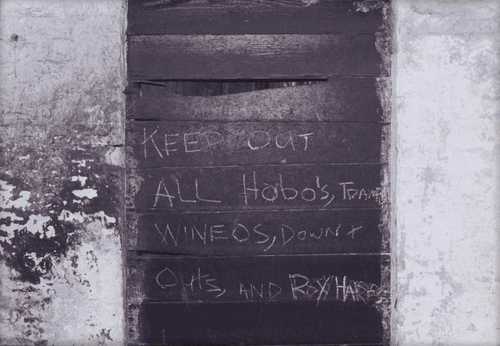 KEEP OUT
ALL HoBo's, TRAMPS
WINEOS, DOWN +
OUTS, AND ROY